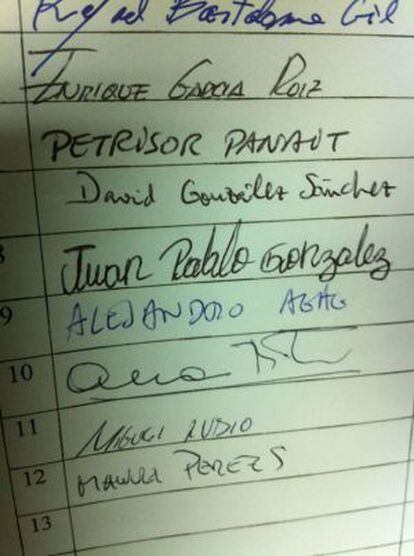 Rafael Bartolome Gil
ENRIQUE GARCIA RUIZ
PETRISOR PANAUT
David González Sánchez
8 Juan Pablo Gonzalez
9 ALEJANDRO AGAG
10
11 MIGUEL RUBIO
12 PEREZ S
13